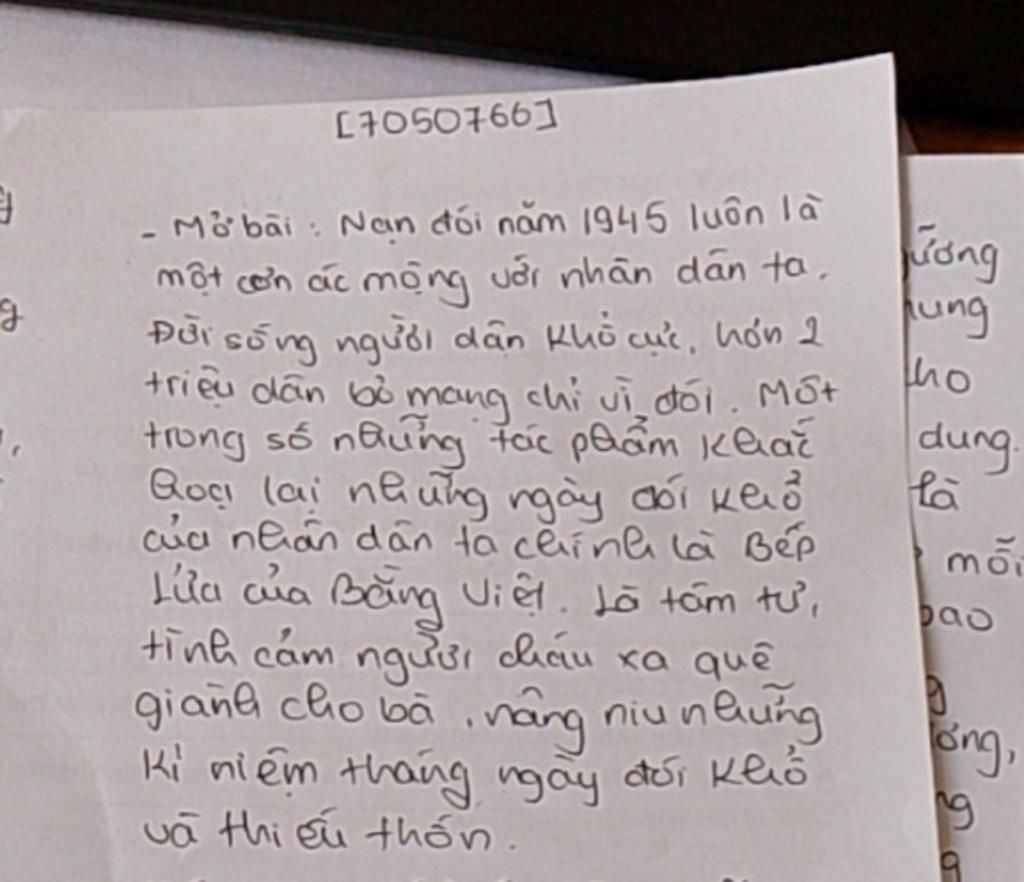 [7050766]
- Mở bài : Nạn đói năm 1945 luôn là
một cơn ác mộng với nhân dân ta.
Đời sống người dân khổ cực, hơn 2
triệu dân bỏ mạng chỉ vì đói. Một
trong số những tác phẩm khai
hoạ lại những ngày đói khổ
của nhân dân ta chính là Bếp
Lửa của Bằng Việt. Là tâm tư,
tình cảm người cháu xa quê
giành cho bà, nâng niu những
kỉ niệm tháng ngày đói khổ
và thiếu thốn.
ương
hung
cho
dung.
là
mỗi
bao
g
ơng,
ng
g